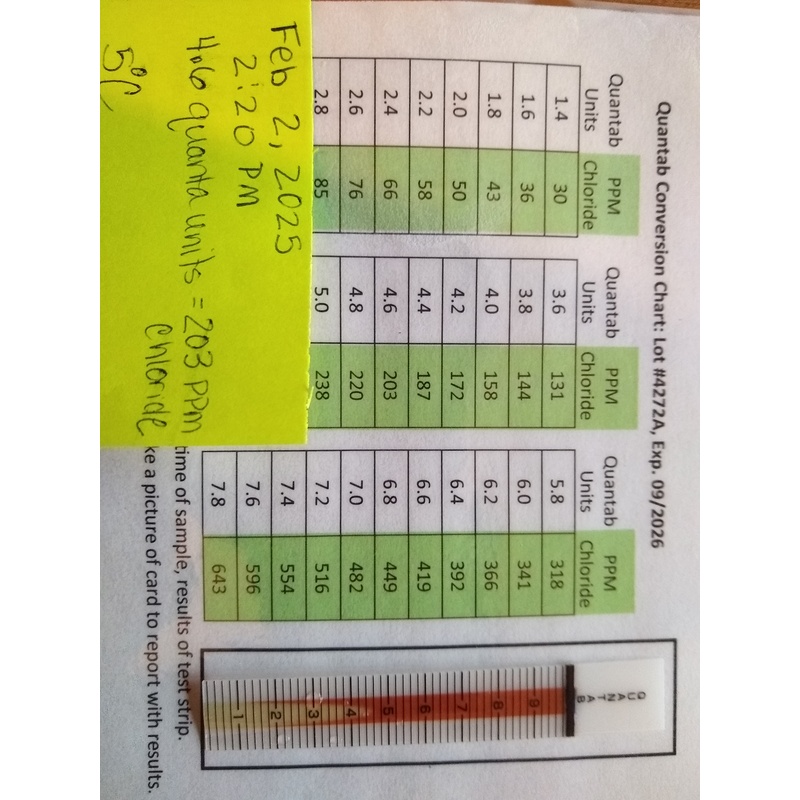 Quantab Conversion Chart: Lot #4272A, Exp. 09/2026
Quantab Units PPM Chloride
1.4 30
1.6 36
1.8 43
2.0 50
2.2 58
2.4 66
2.6 76
2.8 85
Quantab Units PPM Chloride
3.6 131
3.8 144
4.0 158
4.2 172
4.4 187
4.6 203
4.8 220
5.0 238
Quantab Units PPM Chloride
5.8 318
6.0 341
6.2 366
6.4 392
6.6 419
6.8 449
7.0 482
7.2 516
7.4 554
7.6 596
7.8 643
QUANTAB
9
8
7
6
5
4
3
2
1
Feb 2, 2025
2:20 PM
4.6 quanta units = 203 PPM
Chloride
5°C
time of sample, results of test strip.
ke a picture of card to report with results.